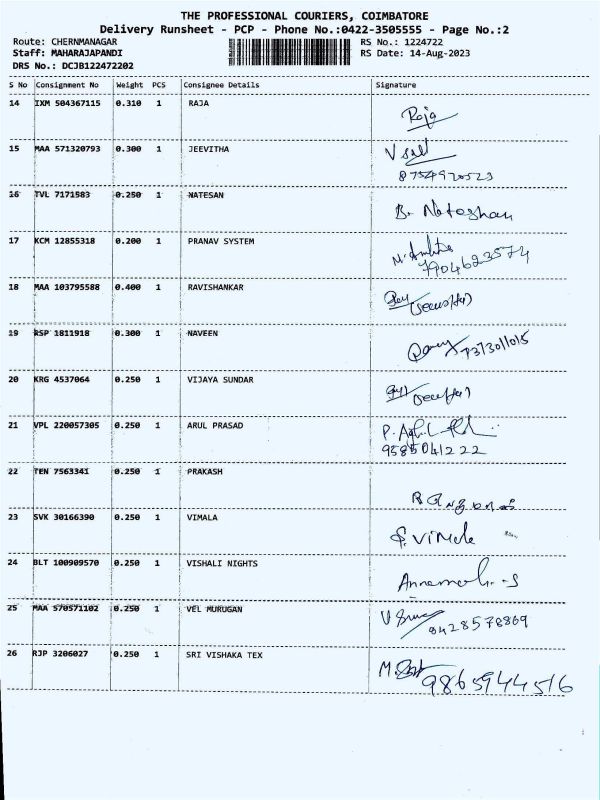 THE PROFESSIONAL COURIERS, COIMBATORE
Delivery Runsheet - PCP - Phone No.:0422-3505555 - Page No.:2
Route: CHERNMANAGAR RS No.: 1224722
Staff: MAHARAJAPANDI RS Date: 14-Aug-2023
DRS No.: DCJB122472202
S No Consignment No Weight PCS Consignee Details Signature
14 IXM 504367115 0.310 1 RAJA Raja
15 MAA 571320793 0.300 1 JEEVITHA
8754920523
16 TVL 7171583 0.250 1 NATESAN B. Nateshan
17 KCM 12855318 0.200 1 PRANAV SYSTEM
7904623574
18 MAA 103795588 0.400 1 RAVISHANKAR
19 RSP 1811918 0.300 1 NAVEEN 7373011015
20 KRG 4537064 0.250 1 VIJAYA SUNDAR
21 VPL 220057305 0.250 1 ARUL PRASAD P.
9585041222
22 TEN 7563341 0.250 1 PRAKASH
23 SVK 30166390 0.250 1 VIMALA
24 BLT 100909570 0.250 1 VISHALI NIGHTS
25 MAA 570571102 0.250 1 VEL MURUGAN
9428578869
26 RJP 3206027 0.250 1 SRI VISHAKA TEX
9865944516